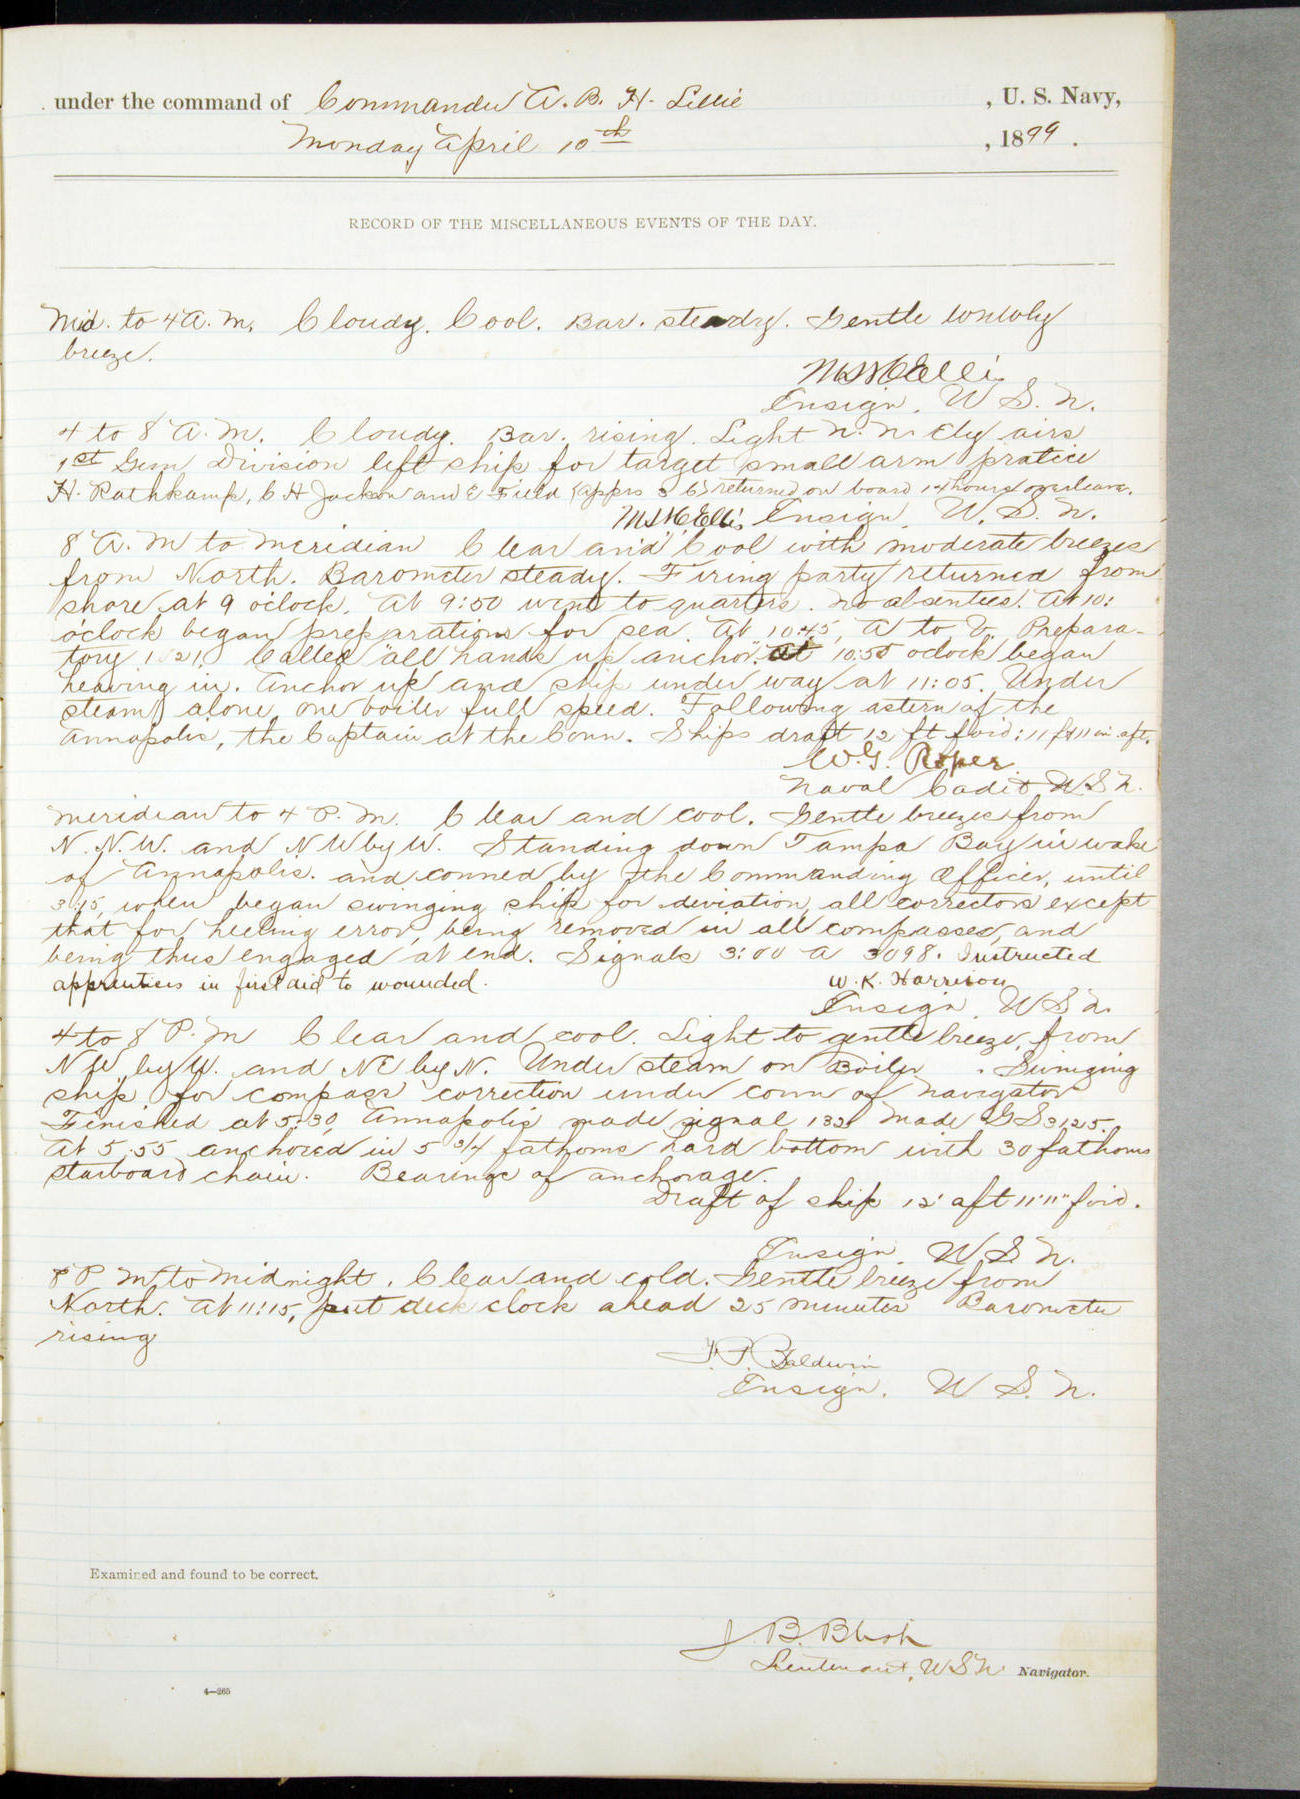 under the command of Commander A. B. H. Lillie , U. S. Navy,
Monday April 10th , 1899 .
RECORD OF THE MISCELLANEOUS EVENTS OF THE DAY.
Mid. to 4 A. M. Cloudy. Cool. Bar. steady. Gentle
breeze.
Ensign, U. S. N.
4 to 8 A. M. Cloudy. Bar. rising. Light N. N. Ely airs
1st Gun Division left ship for target small arm pratice
H. Rathkamp, C H Jackson and E Field (apprs 3 c) returned on board 14 hours overleave.
Ensign, U. S. N.
8 A. M to Meridian Clear and Cool with moderate breezes
from North. Barometer steady. Firing party returned from
shore at 9 o'clock. At 9:50 went to quarters. No absentees. At 10:
o'clock began preparations for sea. At 10:45, A to V, Prepara-
tory 1521. Called "all hands up anchor." At 10:50 oclock began
heaving in. Anchor up and ship under way at 11:05. Under
steam alone one boiler full speed. Following astern of the
Annapolis, the Captain at the Conn. Ships draft 12 ft for'd: 11 ft 11 in aft.
W. G. Roper
Naval Cadet U.S N.
Meridian to 4 P. M. Clear and cool. Gentle breezes from
N. N. W. and N W by W. Standing down Tampa Bay in wake
of Annapolis. and conned by the Commanding Officer, until
3:15, when began swinging ship for deviation, all correctors except
that for heeling error, being removed in all compasses, and
being thus engaged at end. Signals 3:00 A 3098. Instructed
apprentices in first aid to wounded. W. K. Harrison
Ensign, U S N.
4 to 8 P. M Clear and cool. Light to gentle breeze, from
N W by W. and NE by N. Under steam on Boiler . Swinging
ship for compass correction under conn of navigator
Finished at 5:30, Annapolis made signal 132 made GS 3125.
At 5:55 anchored in 5 3/4 fathoms hard bottom with 30 fathoms
starboard chain. Bearings of anchorage.
Draft of ship 12' aft 11' 11" for'd.
Ensign. U. S. N.
8 P M, to Midnight. Clear and cold. Gentle breeze from
North. At 11:15, put deck clock ahead 25 minutes Barometer
rising
Baldwin
Ensign. U S. N.
Examined and found to be correct.
J. B. Blish
Lieutenant, U S N. Navigator.
4—265